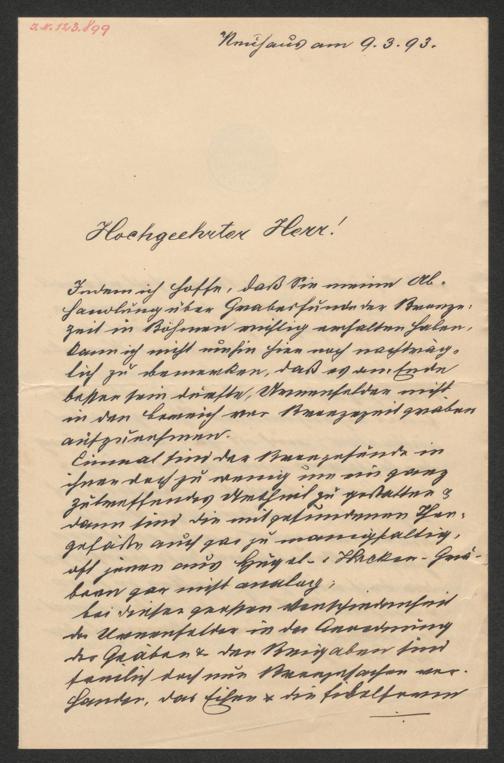 I.N. 123.899
Neuhaus am 9.3.93.
Hochgeehrter Herr!
Indem ich hoffe, daß Sie meine Ab-
handlung über Graberfunde der Bronze-
zeit in Böhmen richtig erhalten haben,
kann ich nicht umhin hier noch nachträg-
lich zu bemerken, daß es am Ende
besser sein dürfte, Urnenfelder nicht
in den Bereich der Bronzezeitgräber
aufzunehmen.
Einmal sind der Bronzefunde in
ihnen doch zu wenig um ein ganz
zutreffendes Urtheil zu gestatten &
dann sind die mitgefundenen Thon-
gefäße auch gar zu manigfaltig,
oft jenen aus Hügel- Grä-
bern gar nicht analog;
bei dieser großen Verschiedenheit
der Urnenfelder in der Anordnung
der Gräber & der Beigaben sind
doch nur Bronzesachen vor-
handen, das Eisen & die Fibelformen